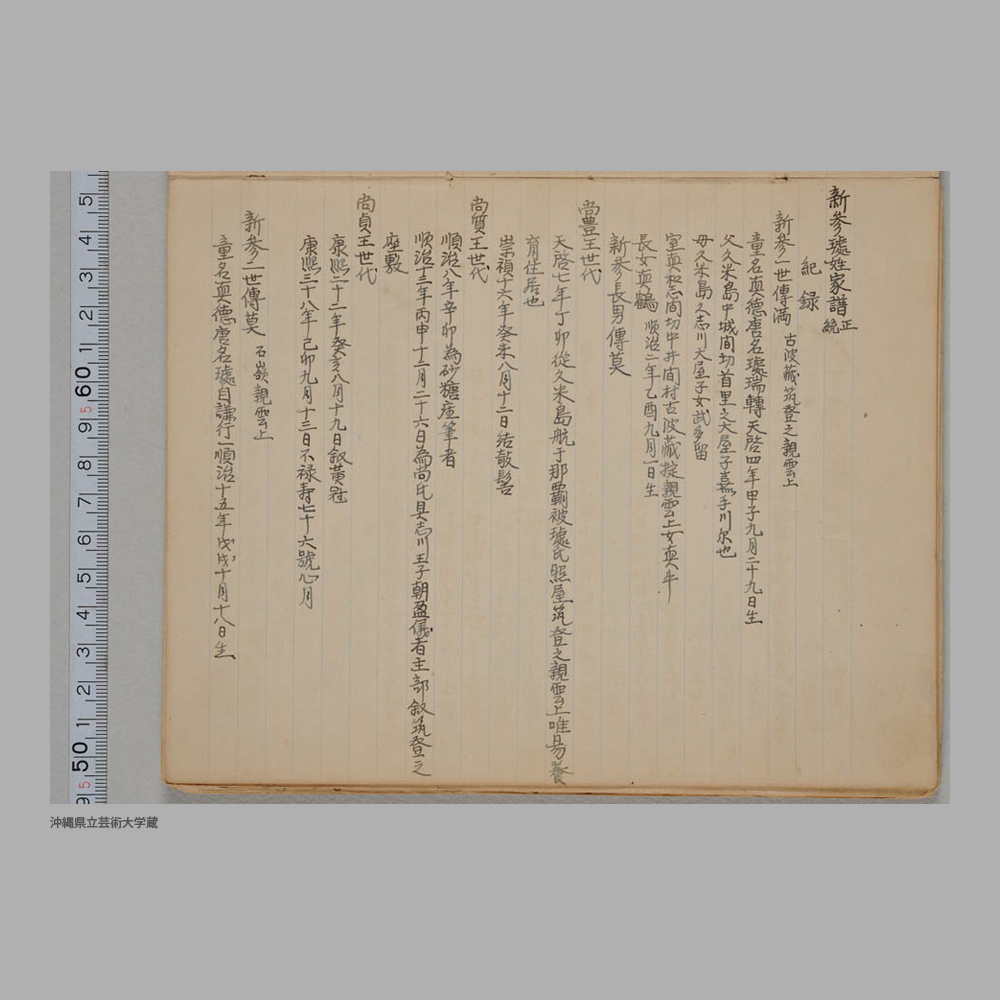 新参璩姓家譜 正統
紀録
新参一世傳満 古波蔵筑登之親雲上
童名真徳唐名璩瑞轉天啓四年甲子九月二十九日生
父久米島中城間切首里之大屋子嘉手川尓也
母久米島久志川大屋子女武多留
室真和志間切中井間村古波蔵掟親雲上女真牛
長女真鶴 順治二年乙酉九月一日生
新参長男傳莫
尚豊王世代
天啓七年丁卯從久米島航于那覇被璩氏照屋筑登之親雲上唯易養
育住居也
崇禎十六年癸未八月十二日結敧髻
尚質王世代
順治八年辛卯為砂糖座筆者
順治十三年丙申十二月二十六日為尚氏具志川王子朝盈儀者主部叙筑登之
座敷
尚貞王世代
康熙二十二年癸亥八月十九日叙黄冠
康熙三十八年己卯九月十三日不禄寿七十六號心月
新参二世傳莫 石嶺親雲上
童名真徳唐名璩自謙行一順治十五年戊戌十月十八日生
5 4 3 2 1 60 9 8 7 6 5 4 3 2 1 50 9
沖縄県立芸術大学蔵